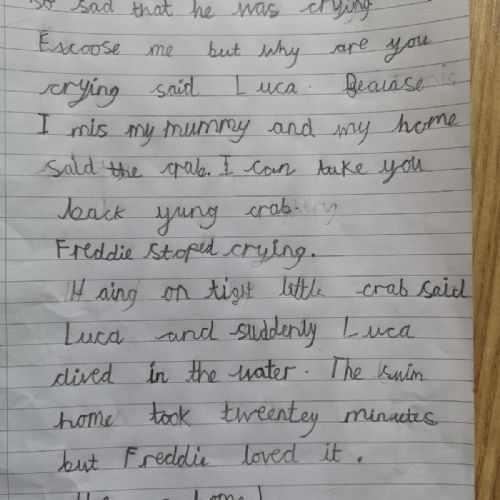 so sad that he was crying
Escoose me but why are you
crying said Luca. Because
I mis my mummy and my home
said the crab. I can take you
back yung crab.
Freddie stoped crying.
Haing on tight little crab said
Luca and suddenly Luca
dived in the water. The swim
home took tweentey minutes
but Freddie loved it.
home